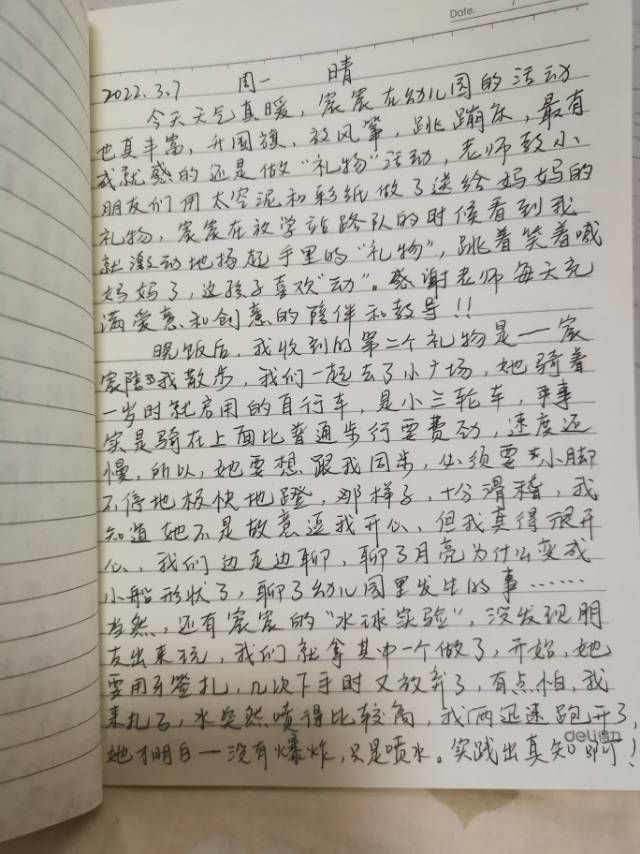 Date.
2022.3.7 周一 晴
今天天气真暖，宸宸在幼儿园的活动
也真丰富，升国旗，放风筝，跳蹦床，最有
成就感的还是做“礼物”活动，老师教小
朋友们用太空泥和彩纸做了送给妈妈的
礼物，宸宸在放学站路队的时候看到我
就激动地扬起手里的“礼物”，跳着笑着喊
妈妈了，这孩子喜欢“动”。感谢老师每天充
满爱意和创意的陪伴和教导!!
晚饭后，我收到的第二个礼物是一宸
宸陪我散步，我们一起去了小广场，她骑着
一岁时就启用的自行车，是小三轮车，事
实是骑在上面比普通步行要费劲，速度还
慢，所以，她要想跟我同步，必须要小脚
不停地极快地蹬，那样子，十分滑稽，我
知道她不是故意逗我开心，但我真得很开
心，我们边走边聊，聊了月亮为什么变成
小船形状了，聊了幼儿园里发生的事……
当然，还有宸宸的“水球实验”，没发现朋
友出来玩，我们就拿其中一个做了，开始，她
要用牙签扎，几次下手时又放弃了，有点怕，我
来扎了，水突然喷得比较高，我俩迅速跑开了，
她才明白一没有爆炸，只是喷水。实践出真知啊！
deli得力